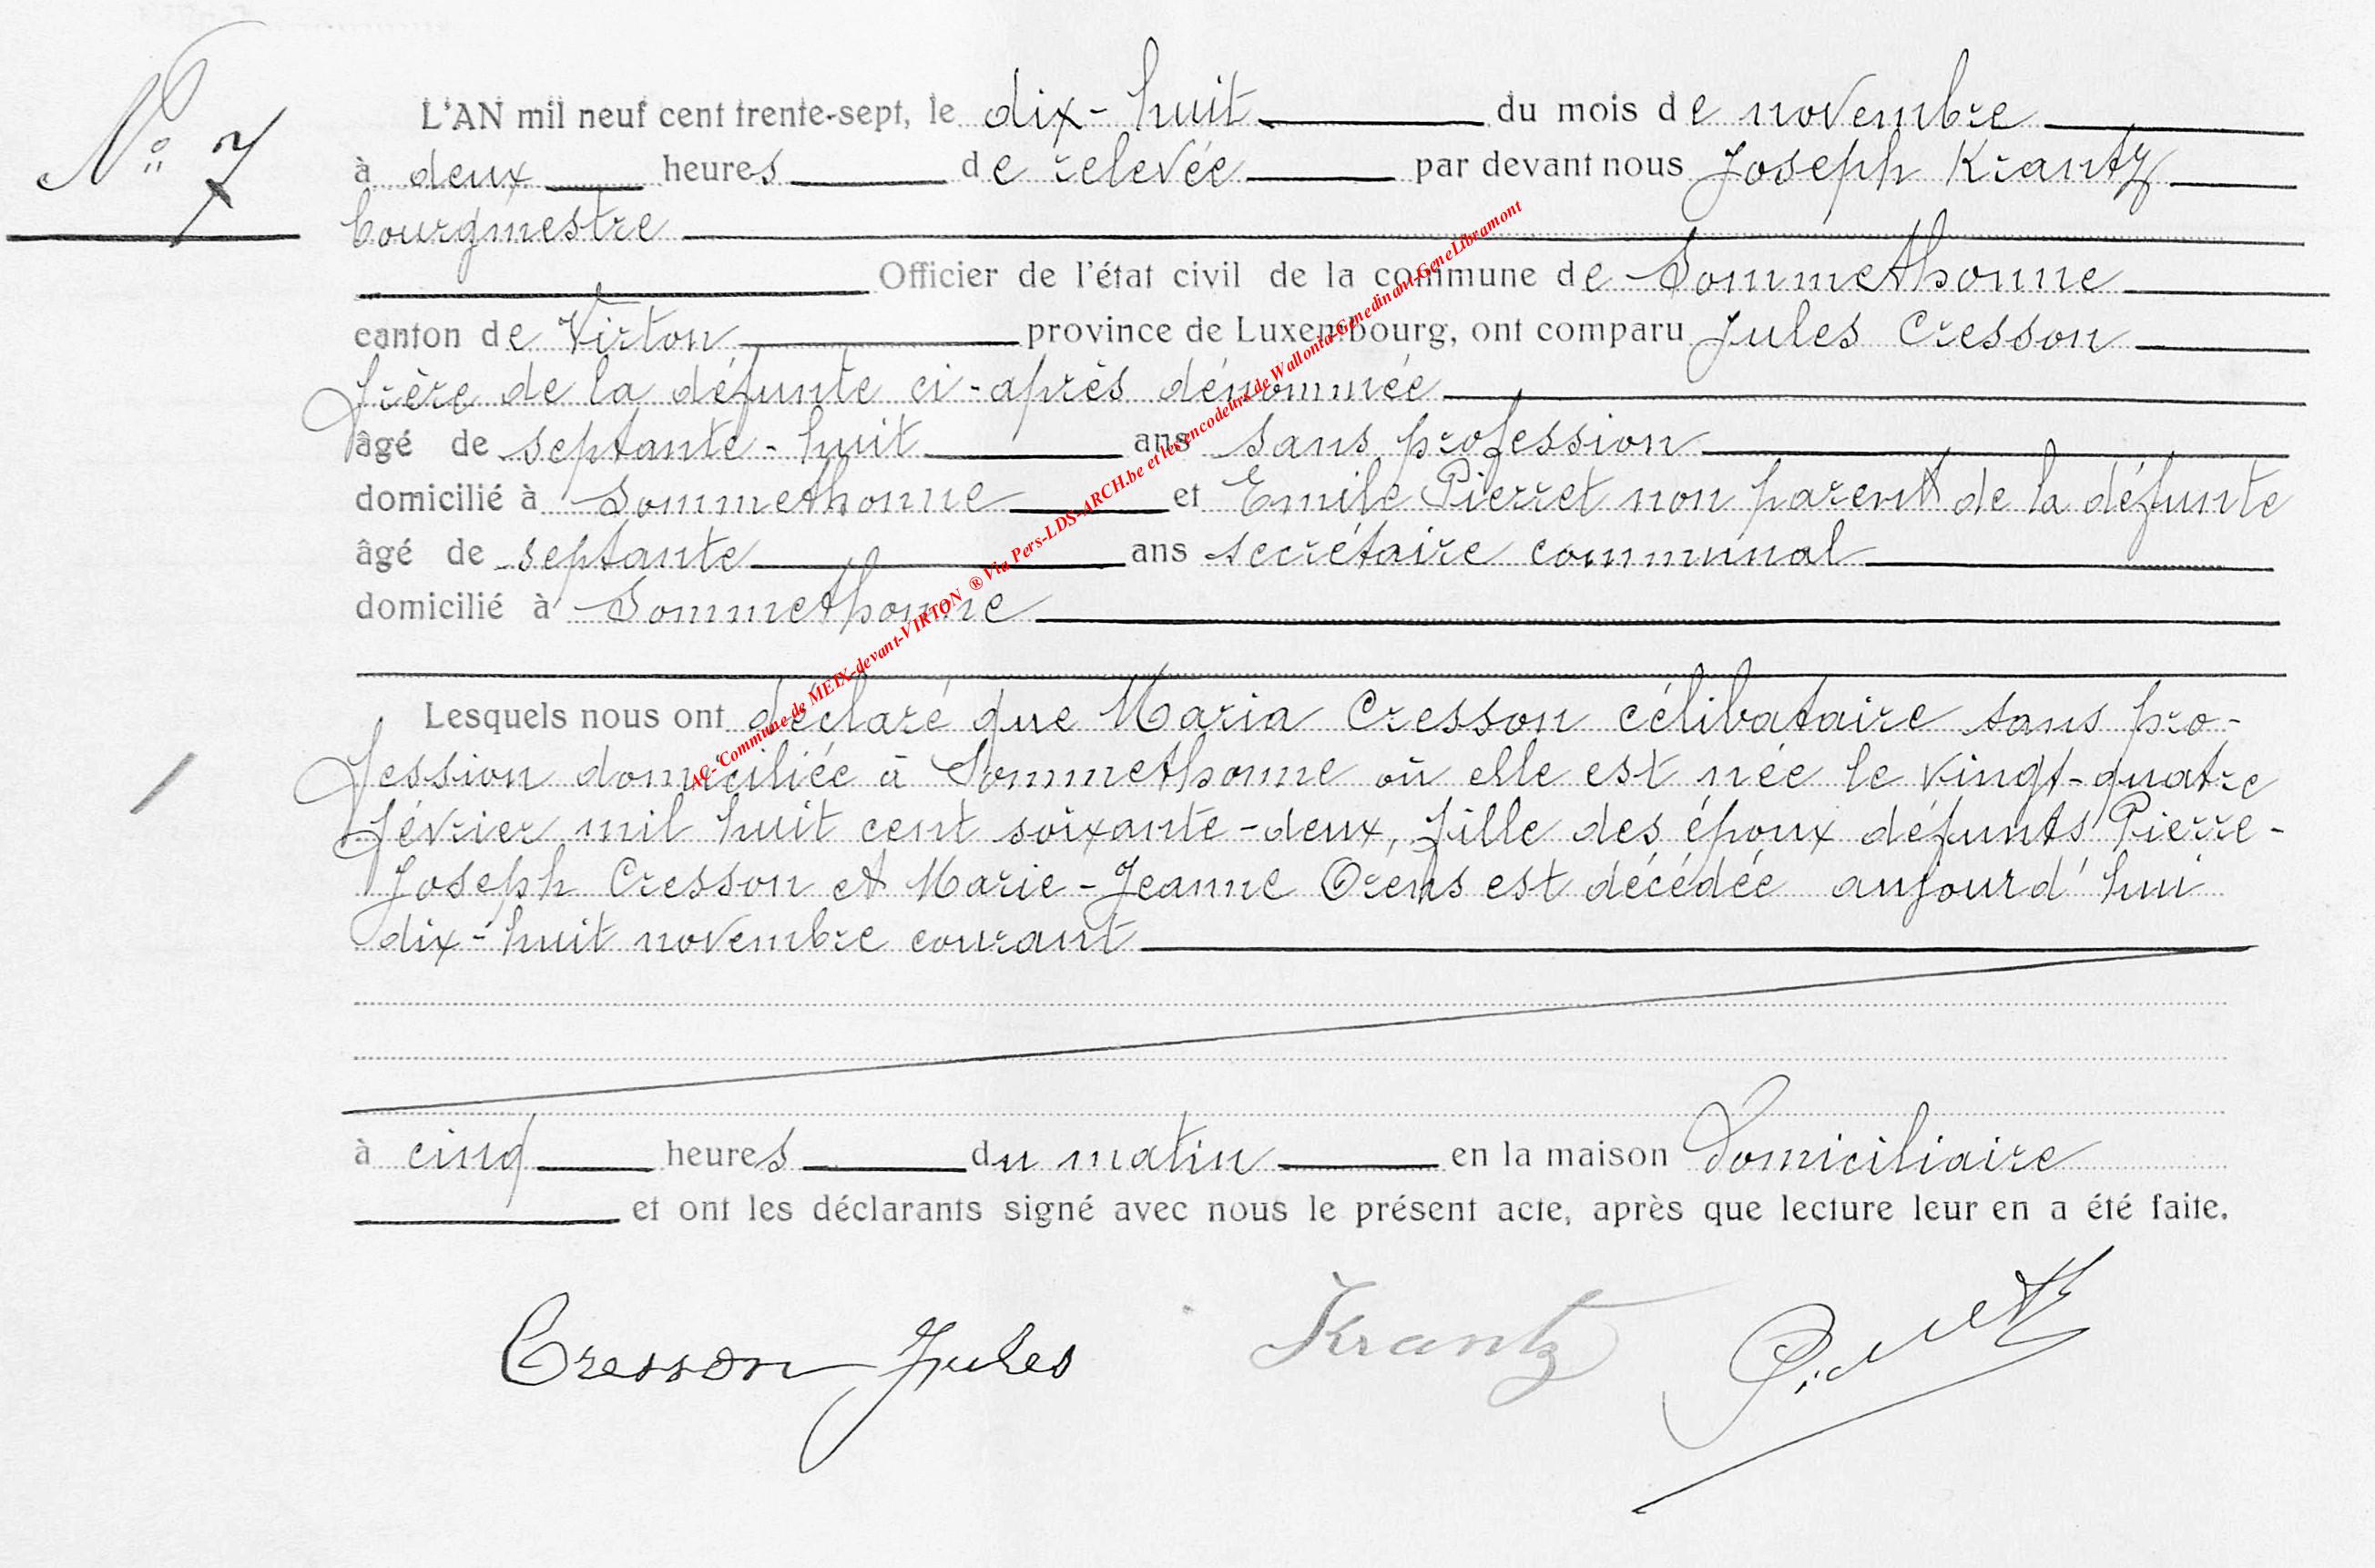 Nº 7
L'AN mil neuf cent trente-sept, le dix-huit du mois de novembre
à deux heures de relevée par devant nous Joseph Krantz
bourgmestre
Officier de l'état civil de la commune de Sommethonne
canton de Virton province de Luxembourg, ont comparu Jules Cresson
frère de la défunte ci-après dénommée
âgé de septante-huit ans sans profession
domicilié à Sommethonne et Emile Pierret non parent de la défunte
âgé de septante ans secrétaire communal
domicilié à Sommethonne
Lesquels nous ont déclaré que Maria Cresson célibataire sans pro-
fession domiciliée à Sommethonne où elle est née le vingt-quatre
février mil huit cent soixante-deux, fille des époux défunts Pierre-
Joseph Cresson et Marie-Jeanne Orens est décédée aujourd'hui
dix-huit novembre courant
à cinq heures du matin en la maison domiciliaire
et ont les déclarants signé avec nous le présent acte, après que lecture leur en a été faite.
Cresson Jules Krantz Pierret
AC-Commune de MEIX-devant-VIRTON ® Via Pers-LDS-ARCH.be et les encodeurs de Wallonia-Genedinant-GeneLibramont